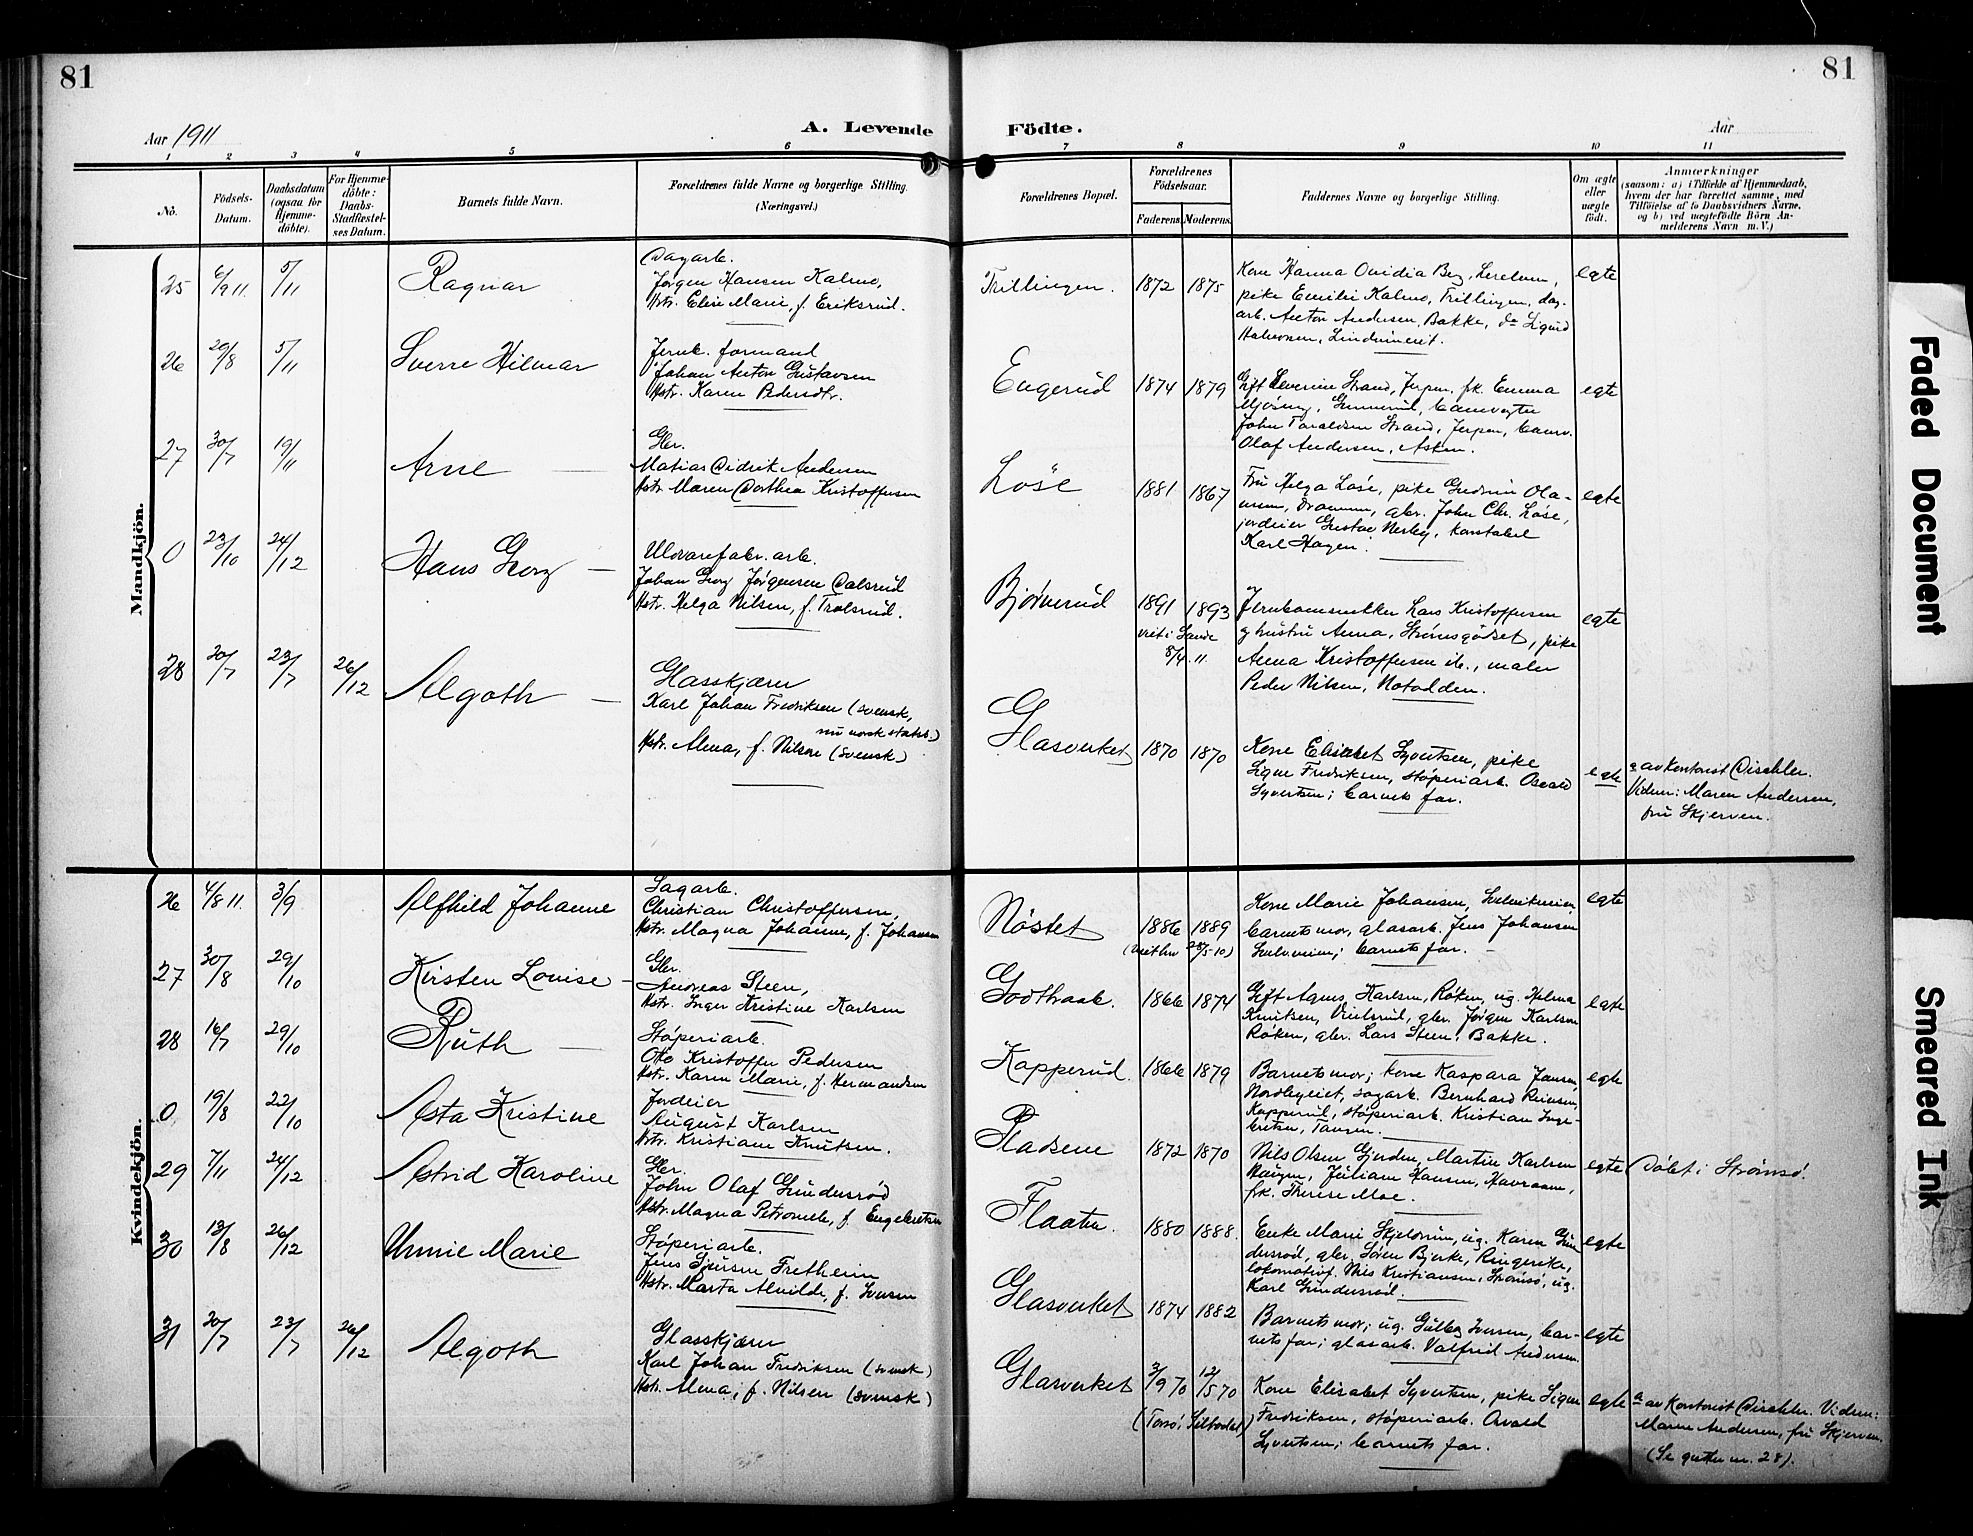 81
81
Aar 1911
A. Levende
Födte.
Aar
1 2 3 4 5 6 7 8 9 10 11
No.
Födsels-Datum.
Daabsdatum (ogsaa for Hjemme-döbte).
For Hjemme-döbte: Daabs-Stadfæstel-ses Datum.
Barnets fulde Navn.
Forældrenes fulde Navne og borgerlige Stilling.
(Næringsvei.)
Forældrenes Bopæl.
Forældrenes Födselsaar.
Faderens.
Moderens.
Faddernes Navne og borgerlige Stilling.
Om ægte eller uægte født.
Anmærkninger
(saasom: a) i Tilfælde af Hjemmedaab,
hvem der har forrettet samme, med
Tilföielse af to Daabsvidners Navne,
og b) ved uægtefödte Börn An-
melderens Navn m. V.)
Mandkjön.
25 6/9 11. 5/11 Ragnar
Dagarb.
Jørgen Hansen Kalmo,
Hstr. Elise Marie, f. Eriksrud.
Trillingen. 1872 1875
Kone Hanna Ovidia Berg,
pike Emilie Kalmo, Trillingen, dag-
arb. Anton Andersen, Bakke, do Sigurd
Halvorsen,
egte
26 20/8 5/11 Sverre Hilmar
Jernb. formand
Johan Anton Gustavsen
Hstr. Karen Pedersdtr.
Engerud 1874 1879
Gift Severine Strand, Jerpen, frk. Emma
Mjøsung, Gunnerud, banevogter
John Taraldsen Strand, Jerpen, banv.
Olaf Andersen, Asken.
egte
27 30/7 19/11 Arne
Gbr.
Matias Didrik Andersen
Hstr. Maren Dorthea Kristoffersen
Løse 1881 1867
Fru Helga Løse, pike Gudrun Ola-
usen, Drammen, gbr. John Chr. Løse,
jordeier Gustav Nerby, konstabel
Karl Hagen.
egte
0 23/10 24/12 Hans Georg
Uldvarefabr. arb.
Johan Georg Jørgensen Dalsrud
Hstr. Helga Nilsen, f. Trolsrud.
Bjørnerud 1891 1893
viet i Sande
8/4 11.
Jernbanesnekker Lars Kristoffersen
og hustru Anna, Strømsgodset, pike
Anna Kristoffersen ib., maler
Peder Nilsen, Notodden.
egte
28 20/7 23/7 26/12 Algoth
Glasskjærer
Karl Johan Fredriksen (svensk,
nu norsk statsb.)
Hstr. Alma, f. Nilson (svensk)
Glasverket 1870 1870
Kone Elisabet Syvertsen, pike
Signe Fredriksen, støperiarb. Osvald
Syvertsen; barnets far.
egte
a av kontorist Dischler.
Vidner: Maren Andersen,
fru Skjerven.
Kvindekjön.
26 4/8 11. 3/9 Alfhild Johanne
Sagarb.
Christian Christoffersen,
Hstr. Magna Johanne, f. Johansen
Nøstet 1886 1889
(viet hv 28/5 10)
Kone Marie Johansen,
barnets mor, glasarb. Jens Johansen
barnets far.
egte
27 30/8 29/10 Kirsten Lovise
Gbr.
Andreas Steen,
Hstr. Inger Kristine Karlsen
Godthaab. 1866 1874
Gift Agnes Karlsen, Røken, ug. Helma
Knutsen, gbr. Jørgen Karlsen
Røken, gbr. Lars Steen, Bakke.
egte
28 16/7 29/10 Ruth
Støperiarb.
Otto Kristoffer Pedersen
Hstr. Karen Marie, f. Hermansen
Kapperud. 1866 1879
Barnets mor; kone Kaspara Jansen,
Nordbyeiet, sagarb. Bernhard
Kapperud, støperiarb. Kristian Inge-
bretsen, Tangen.
egte
0 19/8 22/10 Asta Kristine
Jordeier
August Karlsen
Hstr. Kristiane Knutsen.
Pladsene 1872 1870
Nils Olsen, Martin Karlsen
Haugen, Juliane Hansen,
frk. Therese Moe.
egte
Døbt i Strømsø.
29 7/11 24/12 Astrid Karoline
Gbr.
John Olaf Gundersrød
Hstr. Magna Petronele, f. Engebretsen
Flaaten. 1880 1888.
Enke Marie Skjeldrum, ug. Karen Gun-
dersrød, gbr. Søren Bjerke, Ringerike,
lokomotivf. Nils Kristiansen, Strømsø, ug.
Karl Gundersrød.
egte
30 13/8 26/12 Unnie Marie
Støperiarb.
Jens Sjursen Fretheim
Hstr. Marta Alvilde, f. Iversen
Glasverket 1874 1882
Barnets mor; ug. Gulbg Iversen, bar-
nets far; glasarb. Valfrid Andersen.
egte
31 20/7 23/7 26/12 Algoth
Glasskjærer
Karl Johan Fredriksen (svensk)
Hstr. Alma, f. Nilsen (svensk)
Glasverket 3/9 70 12/5 70
(Torsö, Silbodal)
Kone Elisabet Syvertsen, pike Signe
Fredriksen, støperiarb. Osvald
Syvertsen; barnets far.
egte
a av kontorist Dischler. Vidner:
Maren Andersen, fru Skjerven.
(Se gutter nr. 28).
Faded Document
Smeared Ink